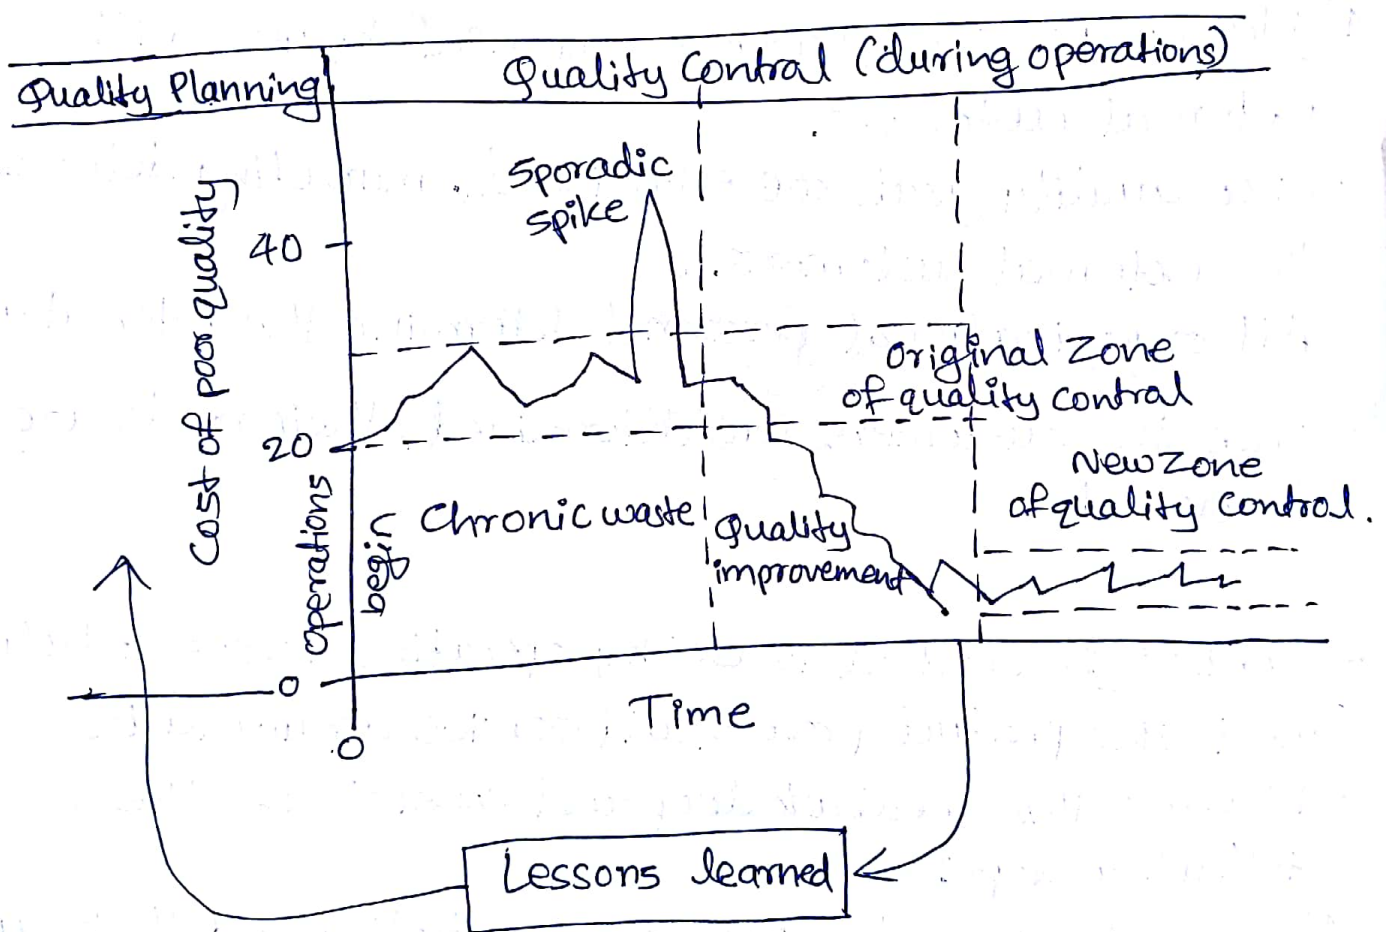 Quality Planning
Quality Control (during operations)
Sporadic
spike
Cost of poor quality
40
20
0
Original Zone
of quality control
New Zone
of quality Control.
Operations
begin
Chronic waste
Quality
improvement
Time
0
Lessons learned